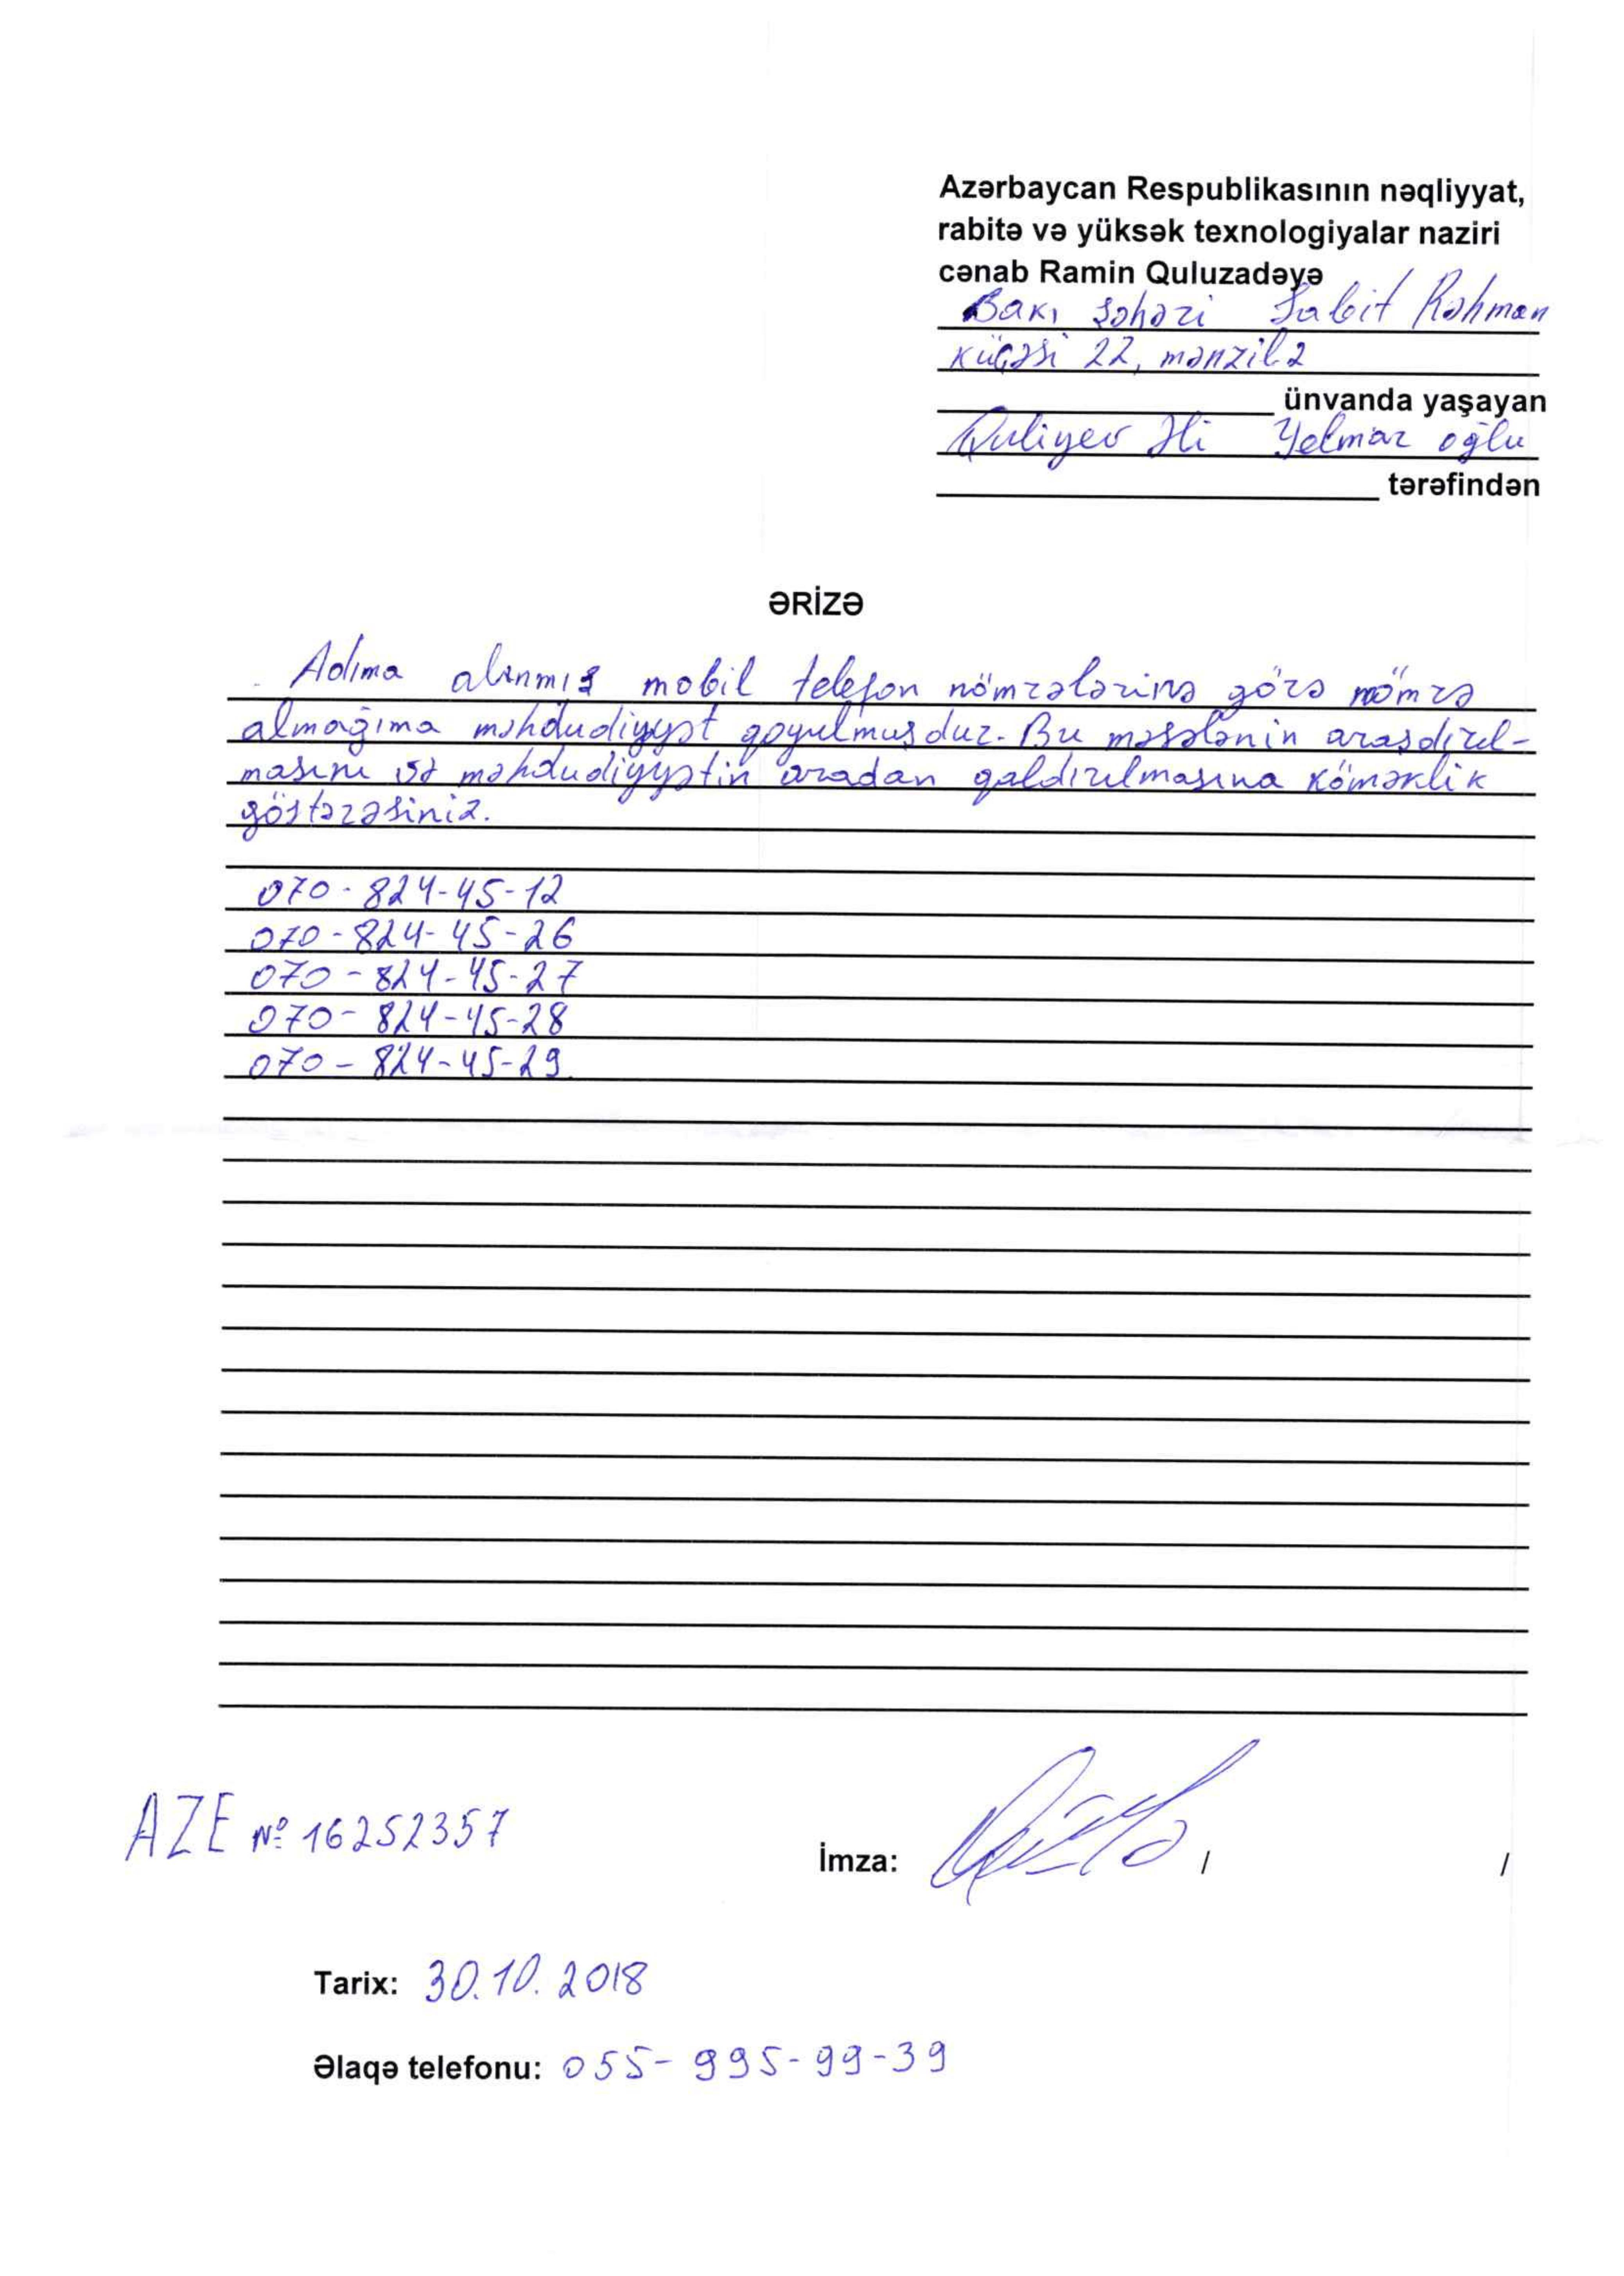 Azərbaycan Respublikasının nəqliyyat,
rabitə və yüksək texnologiyalar naziri
cənab Ramin Quluzadəyə
Bakı şəhəri Sabit Rəhman
küçəsi 22, mənzil 2
ünvanda yaşayan
Quliyev Əli Yelmar oğlu
tərəfindən
ƏRİZƏ
Adıma alınmış mobil telefon nömrələrinə görə nömrə
almağıma məhdudiyyət qoyulmuşdur. Bu məsələnin araşdırıl-
masını və məhdudiyyətin aradan qaldırılmasına köməklik
göstərəsiniz.
070-824-45-12
070-824-45-26
070-824-45-27
070-824-45-28
070-824-45-29
AZE № 16252357
İmza: / /
Tarix: 30.10.2018
Əlaqə telefonu: 055-995-99-39